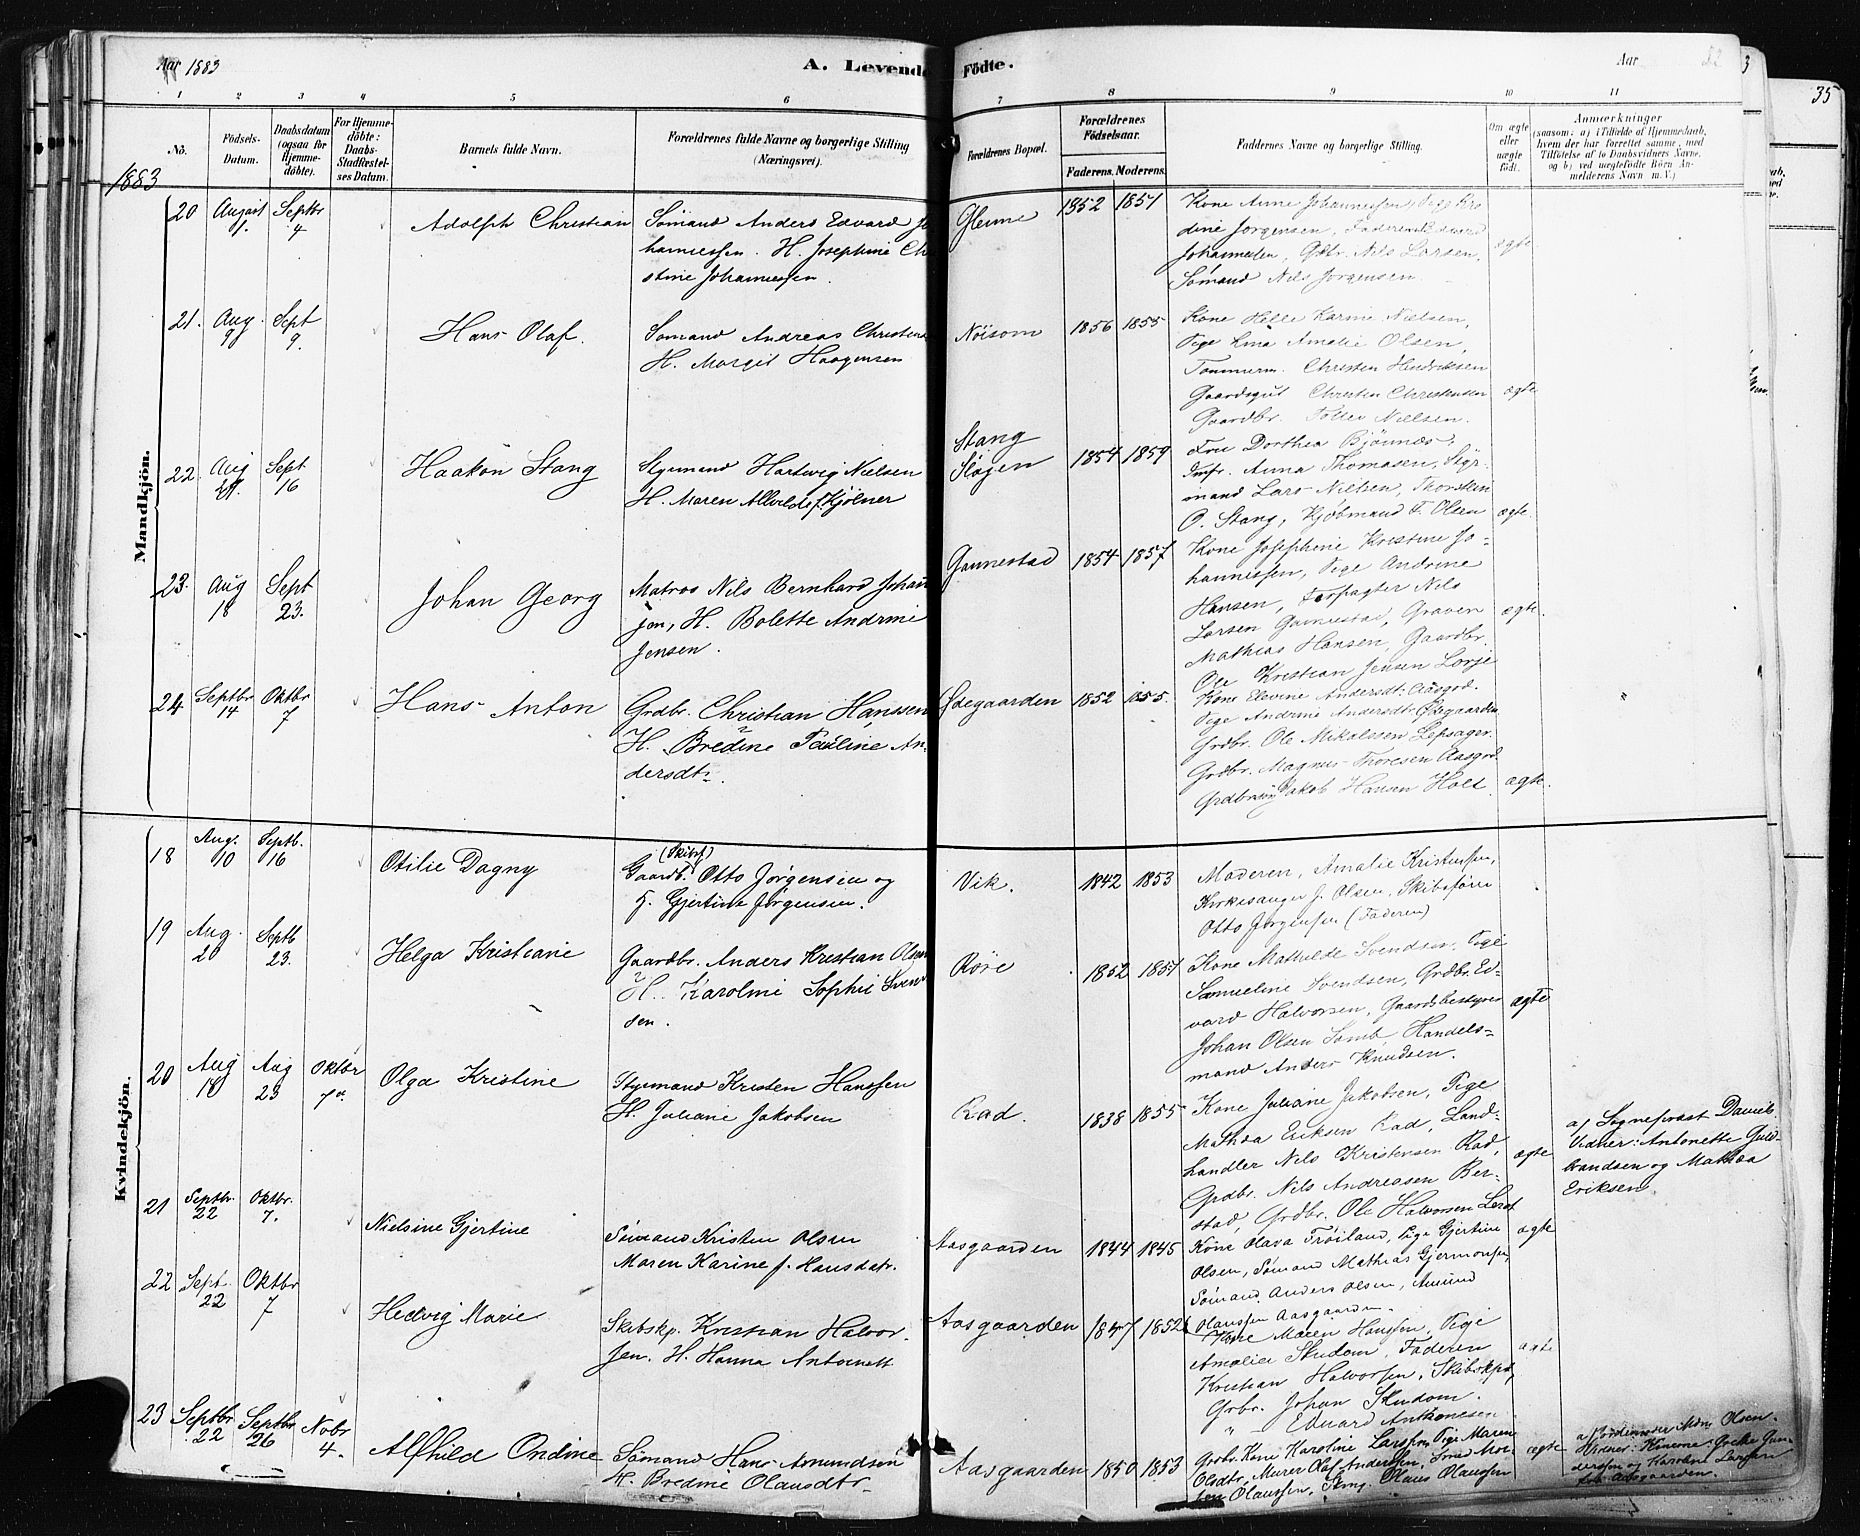 Aar 1883
A. Levende Födte.
Aar
35
1 2 3 4 5 6 7 8 9 10 11
No.
Födsels-Datum.
Daabsdatum (ogsaa for Hjemmedöbte).
For Hjemmedöbte: Daabs-Stadfæstelses Datum.
Barnets fulde Navn.
Forældrenes fulde Navne og borgerlige Stilling (Næringsvei).
Forældrenes Bopæl.
Forældrenes Födselsaar.
Faderens. Moderens.
Faddernes Navne og borgerlige Stilling.
Om ægte eller uægte födt.
Anmærkninger
(saasom: a) i Tilfælde af Hjemmedaab, hvem der har forrettet samme, med Tilföielse af to Daabsvidners Navne, og b) ved uægtefödte Börn Anmelderens Navn m. V.)
1883
Mandkjön.
20 August 1. Septbr 4
Adolph Christian
Sömand Anders Edvard Jo
hannessen. H. Josephine Ch
stine Johannessen.
Glenne
1852 1857
Kone Anne Johannessen, Pige
dine Jörgensen, Faderen Edvard
Johannesen, Gdbr. Nils Larsen,
Sömand Nils Jörgensen
ægte
21. Aug. 9 Sept 9.
Hans Olaf.
Sömand Andreas Christens
H. Margit Haagensen
Nöisom
1856 1855
Kone Helle Karine Nielsen,
Pige Lina Amalie Olsen,
Tömmerm. Christen Hendriksen
Gaardsgut Christen Christensen
Gaardbr. Tolle Nielsen.
ægte
22. Aug Sept. 16
Haakon Stang
Styrmand Hartvig Nielsen
H. Maren Allvilde f. Kjölner
Stang
Slagen
1854 1859
Fru Dorthea Bjönnæs,
Jmfr. Anna Thomasen, Styr-
mand Lars Nielsen, Thorstein
O. Stang, Kjöbmand F. Olsen
ægte.
23. Aug 18 Sept 23.
Johan Georg
Matros Nils Bernhard Johan
sen, H. Bolette Andrine
Jensen.
Gannestad
1854 1857
Kone Josephine Kristine Jo-
hannessen, Pige Andrine
Hansen, Forpagter Nils
Larsen Gannestad, Graver
Mathias Hansen, Gaardbr.
Ole Kristian Jensen Lorje
ægte.
24 Septbr 14 Oktbr 7
Hans Anton
Grdbr. Christian Hanssen
H. Bredine Pauline An-
dersdtr.
Ödegaarden
1852 1855.
Kone Elevine Andersdt: Aasgrd.
Pige Andrine Andersdt: Ödegaarden
Grdbr. Ole Mikalssen Lepsager.
Grdbr. Magnus Thoresen Aasgrd
Grdbrsön Jakob Hansen Holt
ægte.
Kvindekjön.
18 Aug. 10 Septb. 16
Otilie Dagny
(Skibsf)
Gaardb. Otto Jörgensen og
H. Gjertine Jörgensen.
Vik.
1842 1853
Moderen, Amalie Kristensen,
Kirkesanger J. Olsen, Skibsförer
Otto Jörgensen (Faderen)
19 Aug. 20 Septb 23.
Helga Kristiane
Gaardbr. Anders Kristian Olsen
H. Karoline Sophie Sven
sen.
Röre
1852 1857
Kone Mathilde Svendsen, Pige
Samueline Svendsen, Grdbr. Ed-
vard Halvorsen, Gaardsbestyrer
Johan Olsen Somb, Handels-
mand Anders Knudsen.
ægte
20 Aug 18 Aug 23 Oktbr 7de
Olga Kristine
Styrmand Kristen Hanssen
H. Juliane Jakobsen
Rad.
1838 1855
Kone Juliane Jakobsen, Pige
Mathea Eriksen Rad, Land-
handler Nils Kristensen Rad,
Grdbr. Nils Andreassen Ber-
stad, Grdbr. Ole Halvorsen
ægte
a, Sogneprest Daniels.
Vidner: Antonette Guld-
brandsen og Mathea
Eriksen.
21 Septbr. 22 Oktbr. 7.
Nielsine Gjertine
Sömand Kristen Olsen
Maren Karine f. Hansdatr.
Aasgaarden
1844 1845
Kone Olava Tröiland, Pige Gjertine
Olsen, Sömand Mathias Gjermonsen,
Sömand Anders Olsen, Amund
Olaussen Aasgaarden.
ægte
22 Sept. 22 Oktbr 7
Hedvig Marie
Skibskp. Kristian Halvor-
sen. H. Hanna Antonett
Aasgaarden
1847 1852
Kone Maren Hanssen, Pige
Amalie Skudom, Faderen
Kristian Halvorsen, Skibskpt,
Grbr. Johan Skudom.
" Eduard Anthonesen
ægte
23 Septbr 22 Septbr 26 Novbr 4.
Alfhild Ondine
Sömand Hans Amundsen
H. Bredine Olausdtr
Aasgaarden
1850 1853
Grbr. Kone Karoline Larssen, Pige Maren
Olsdtr, Murer Olaf Andersen,
Olaussen, Olaus Olaussen
ægte
a, Jordemoder Olsen.
Vidner: Konerne: Grethe Gun-
derssen og Karoline Larssen
fra Aasgaarden.